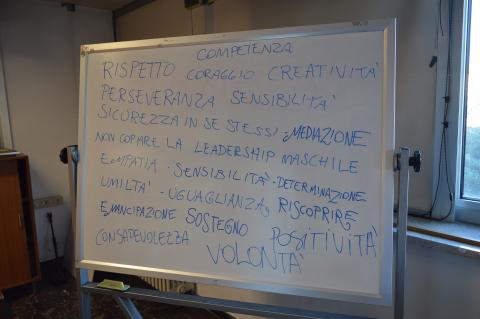 COMPETENZA
RISPETTO CORAGGIO CREATIVITA'
PERSEVERANZA SENSIBILITA'
SICUREZZA IN SE STESSI - MEDIAZIONE
NON COPIARE LA LEADERSHIP MASCHILE
EMPATIA - SENSIBILITA' - DETERMINAZIONE
UMILTA' - UGUAGLIANZA, RISCOPRIRE
EMANCIPAZIONE SOSTEGNO POSITIVITA'
CONSAPEVOLEZZA VOLONTA'